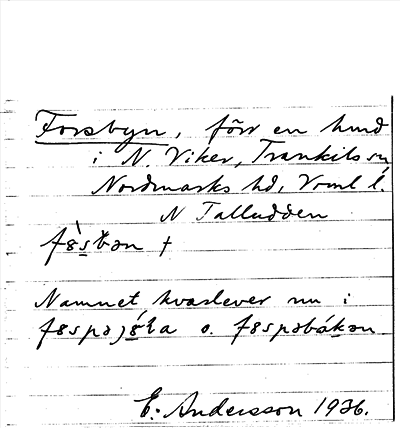 Forsbyn, förr en hund
i N. Viker, Trankils sn,
Nordmarks hd, Vrml l.
N Talludden
fə̀sbən †
Namnet kvarlever nu i
o.
E. Andersson 1936.